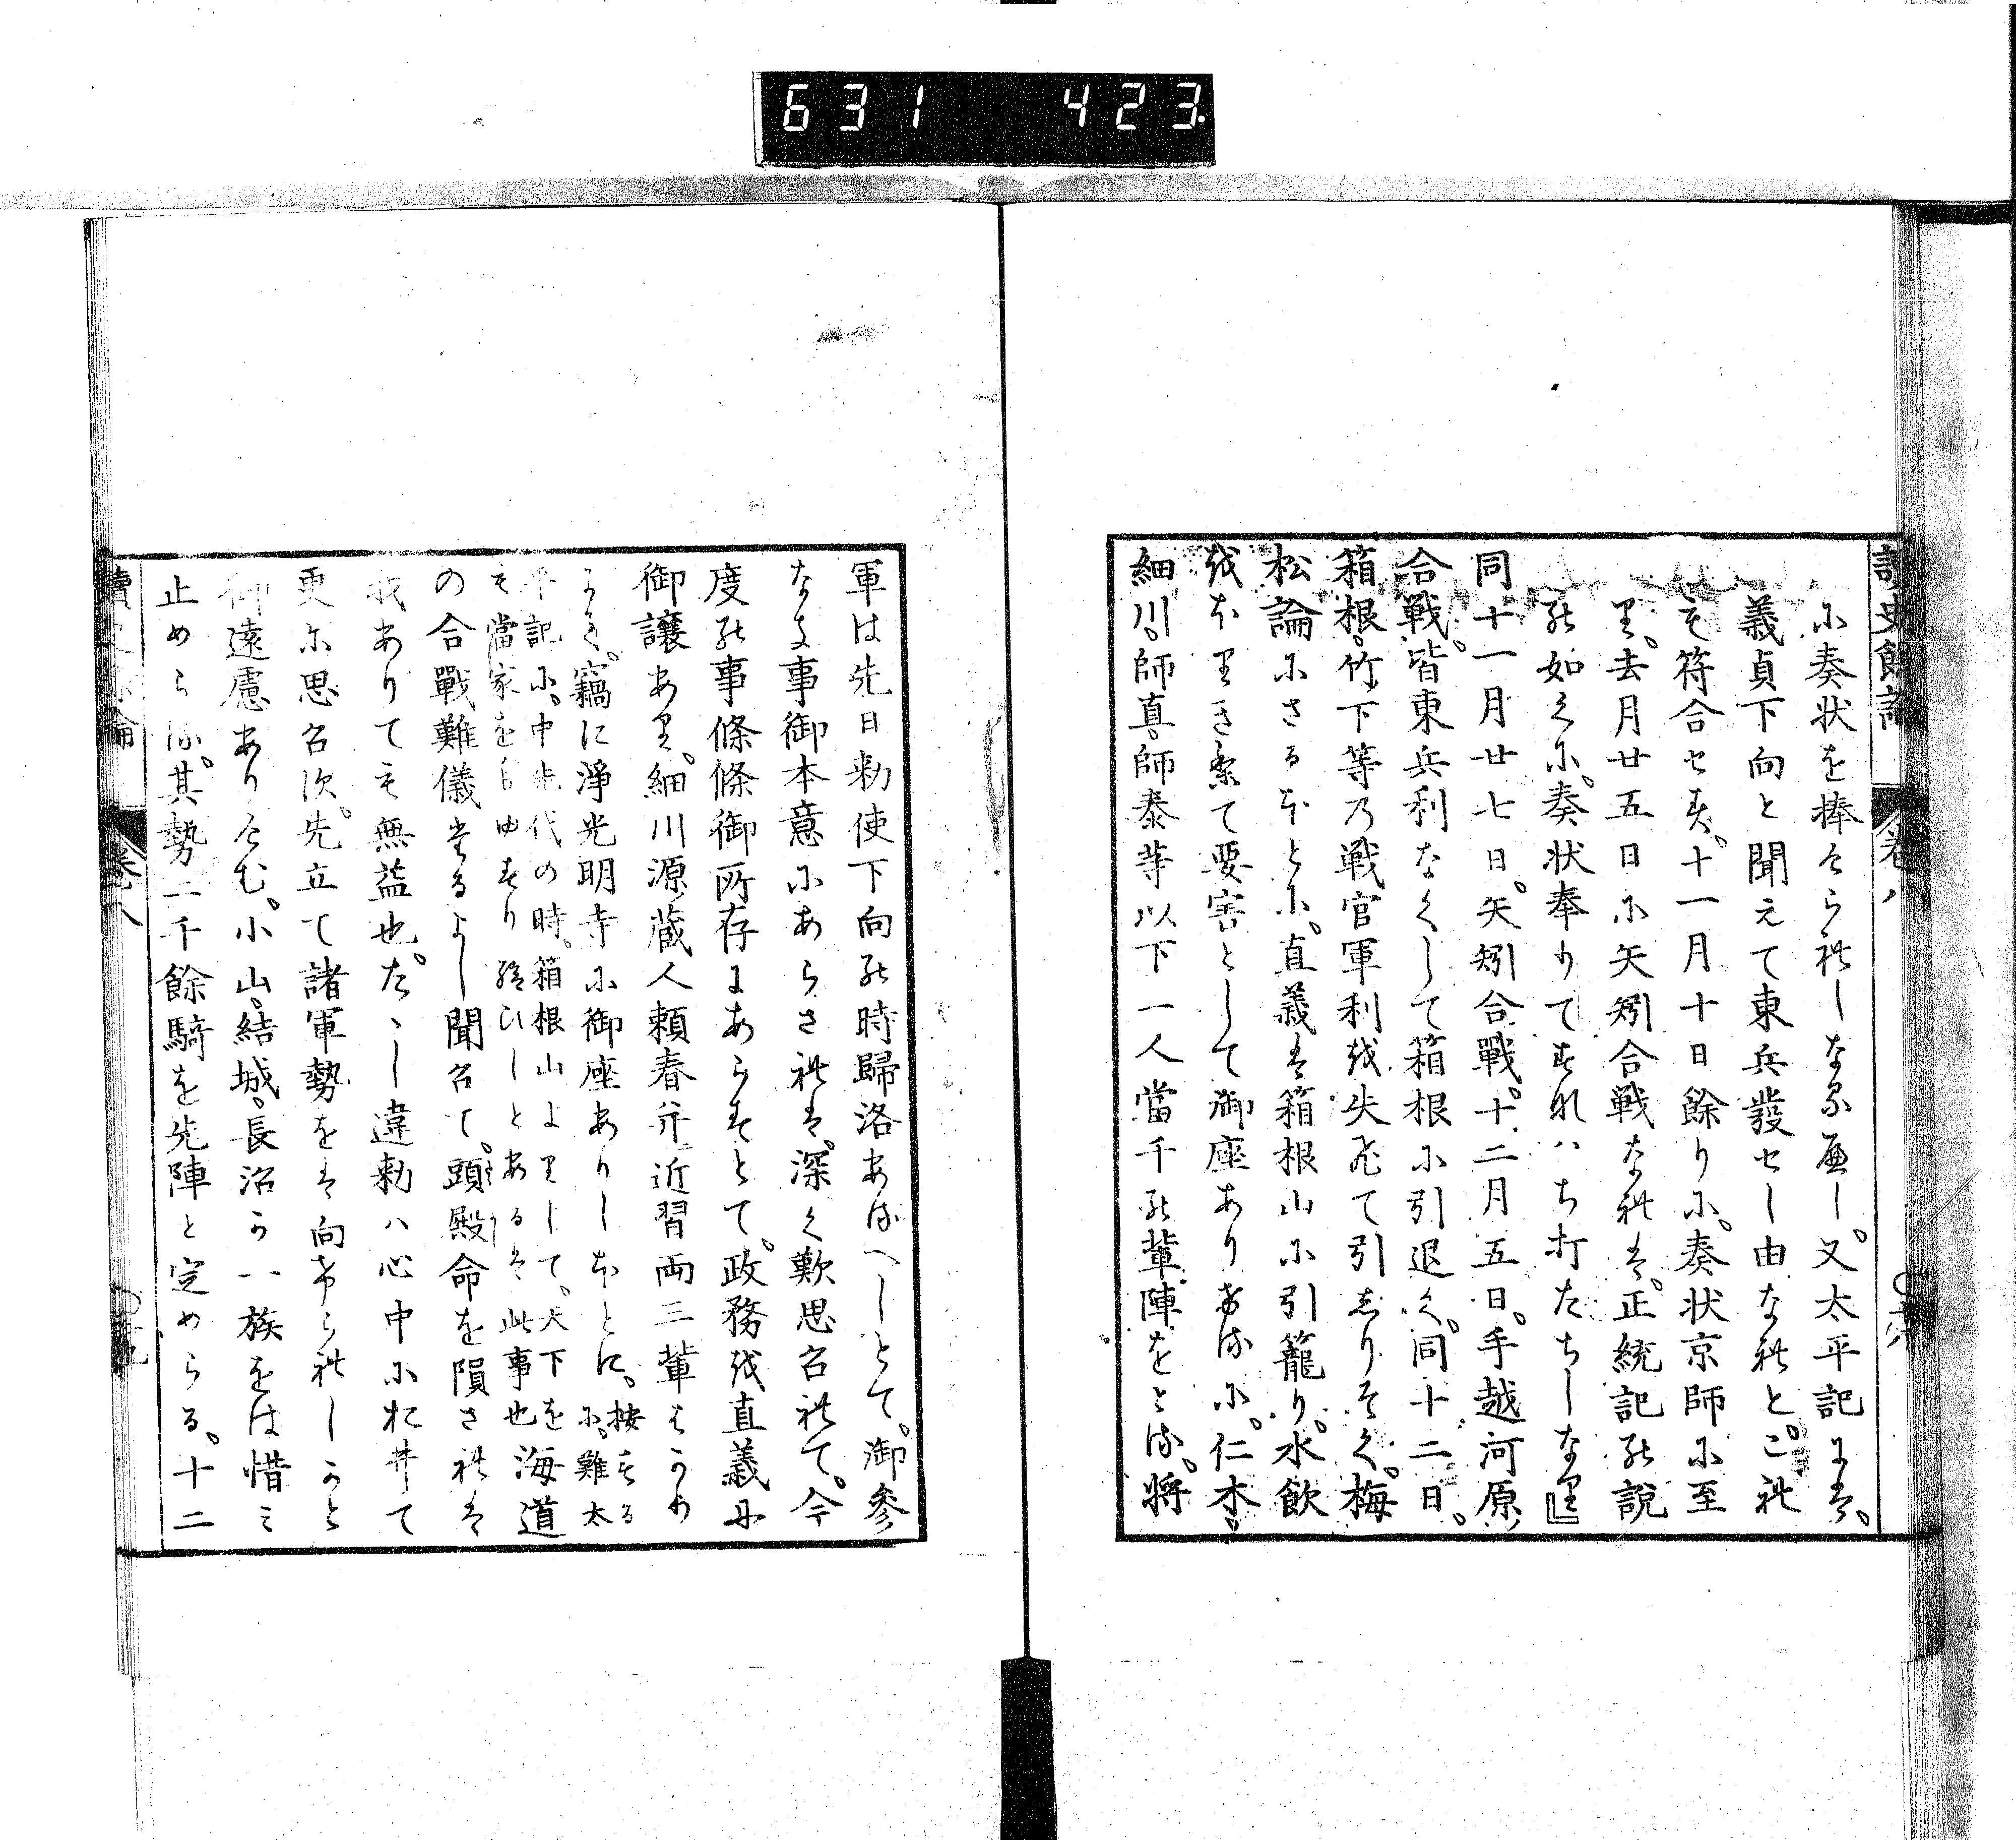 631 423
讀史餘論 卷八
に奏状を捧けられしなるへし。又太平記には。
義貞下向と聞えて東兵發せし由なれと。これ
も符合せす。十一月十日餘りに。奏状京師に至
り。去月廿五日に矢矧合戦なれは。正統記の説
の如くに。奏状奉りてすなハち打たちしなり』
同十一月廿七日。矢矧合戰。十二月五日。手越河原
合戰。皆東兵利なくして箱根に引退く。同十二日。
箱根。竹下等乃戦官軍利を失ひて引しりそく。梅
松論にさるほとに。直義は箱根山に引籠り。水飲
をほりきりて要害として御座ありける に。仁木。
細川。師直。師泰等以下一人當千の輩陣をとる。将
軍は先日勅使下向の時歸洛あるへしとて。御參
なき事御本意にあらされは。深く歎思召れて。今
度の事條條御所存にあらすとて。政務を直義に
御譲あり。細川源蔵人頼春并近習両三輩はかり
にて。竊に淨光明寺に御座ありしほとに。按する
に。難太
平記に。中先代の時。箱根山よりして。天下を
も當家をも由すり給ひしとあるは此事也海道
の合戰難儀たるよし聞召て。頭殿命を隕され は
我ありても無益也。たゝし違勅ハ心中にをいて
更に思召次。先立て諸軍勢をは向けられしかと
御遠慮ありけむ。小山。結城。長沼か一族をは惜ミ
止めらる。其勢二千餘騎を先陣と定めらる。十二
讀史餘論 卷八